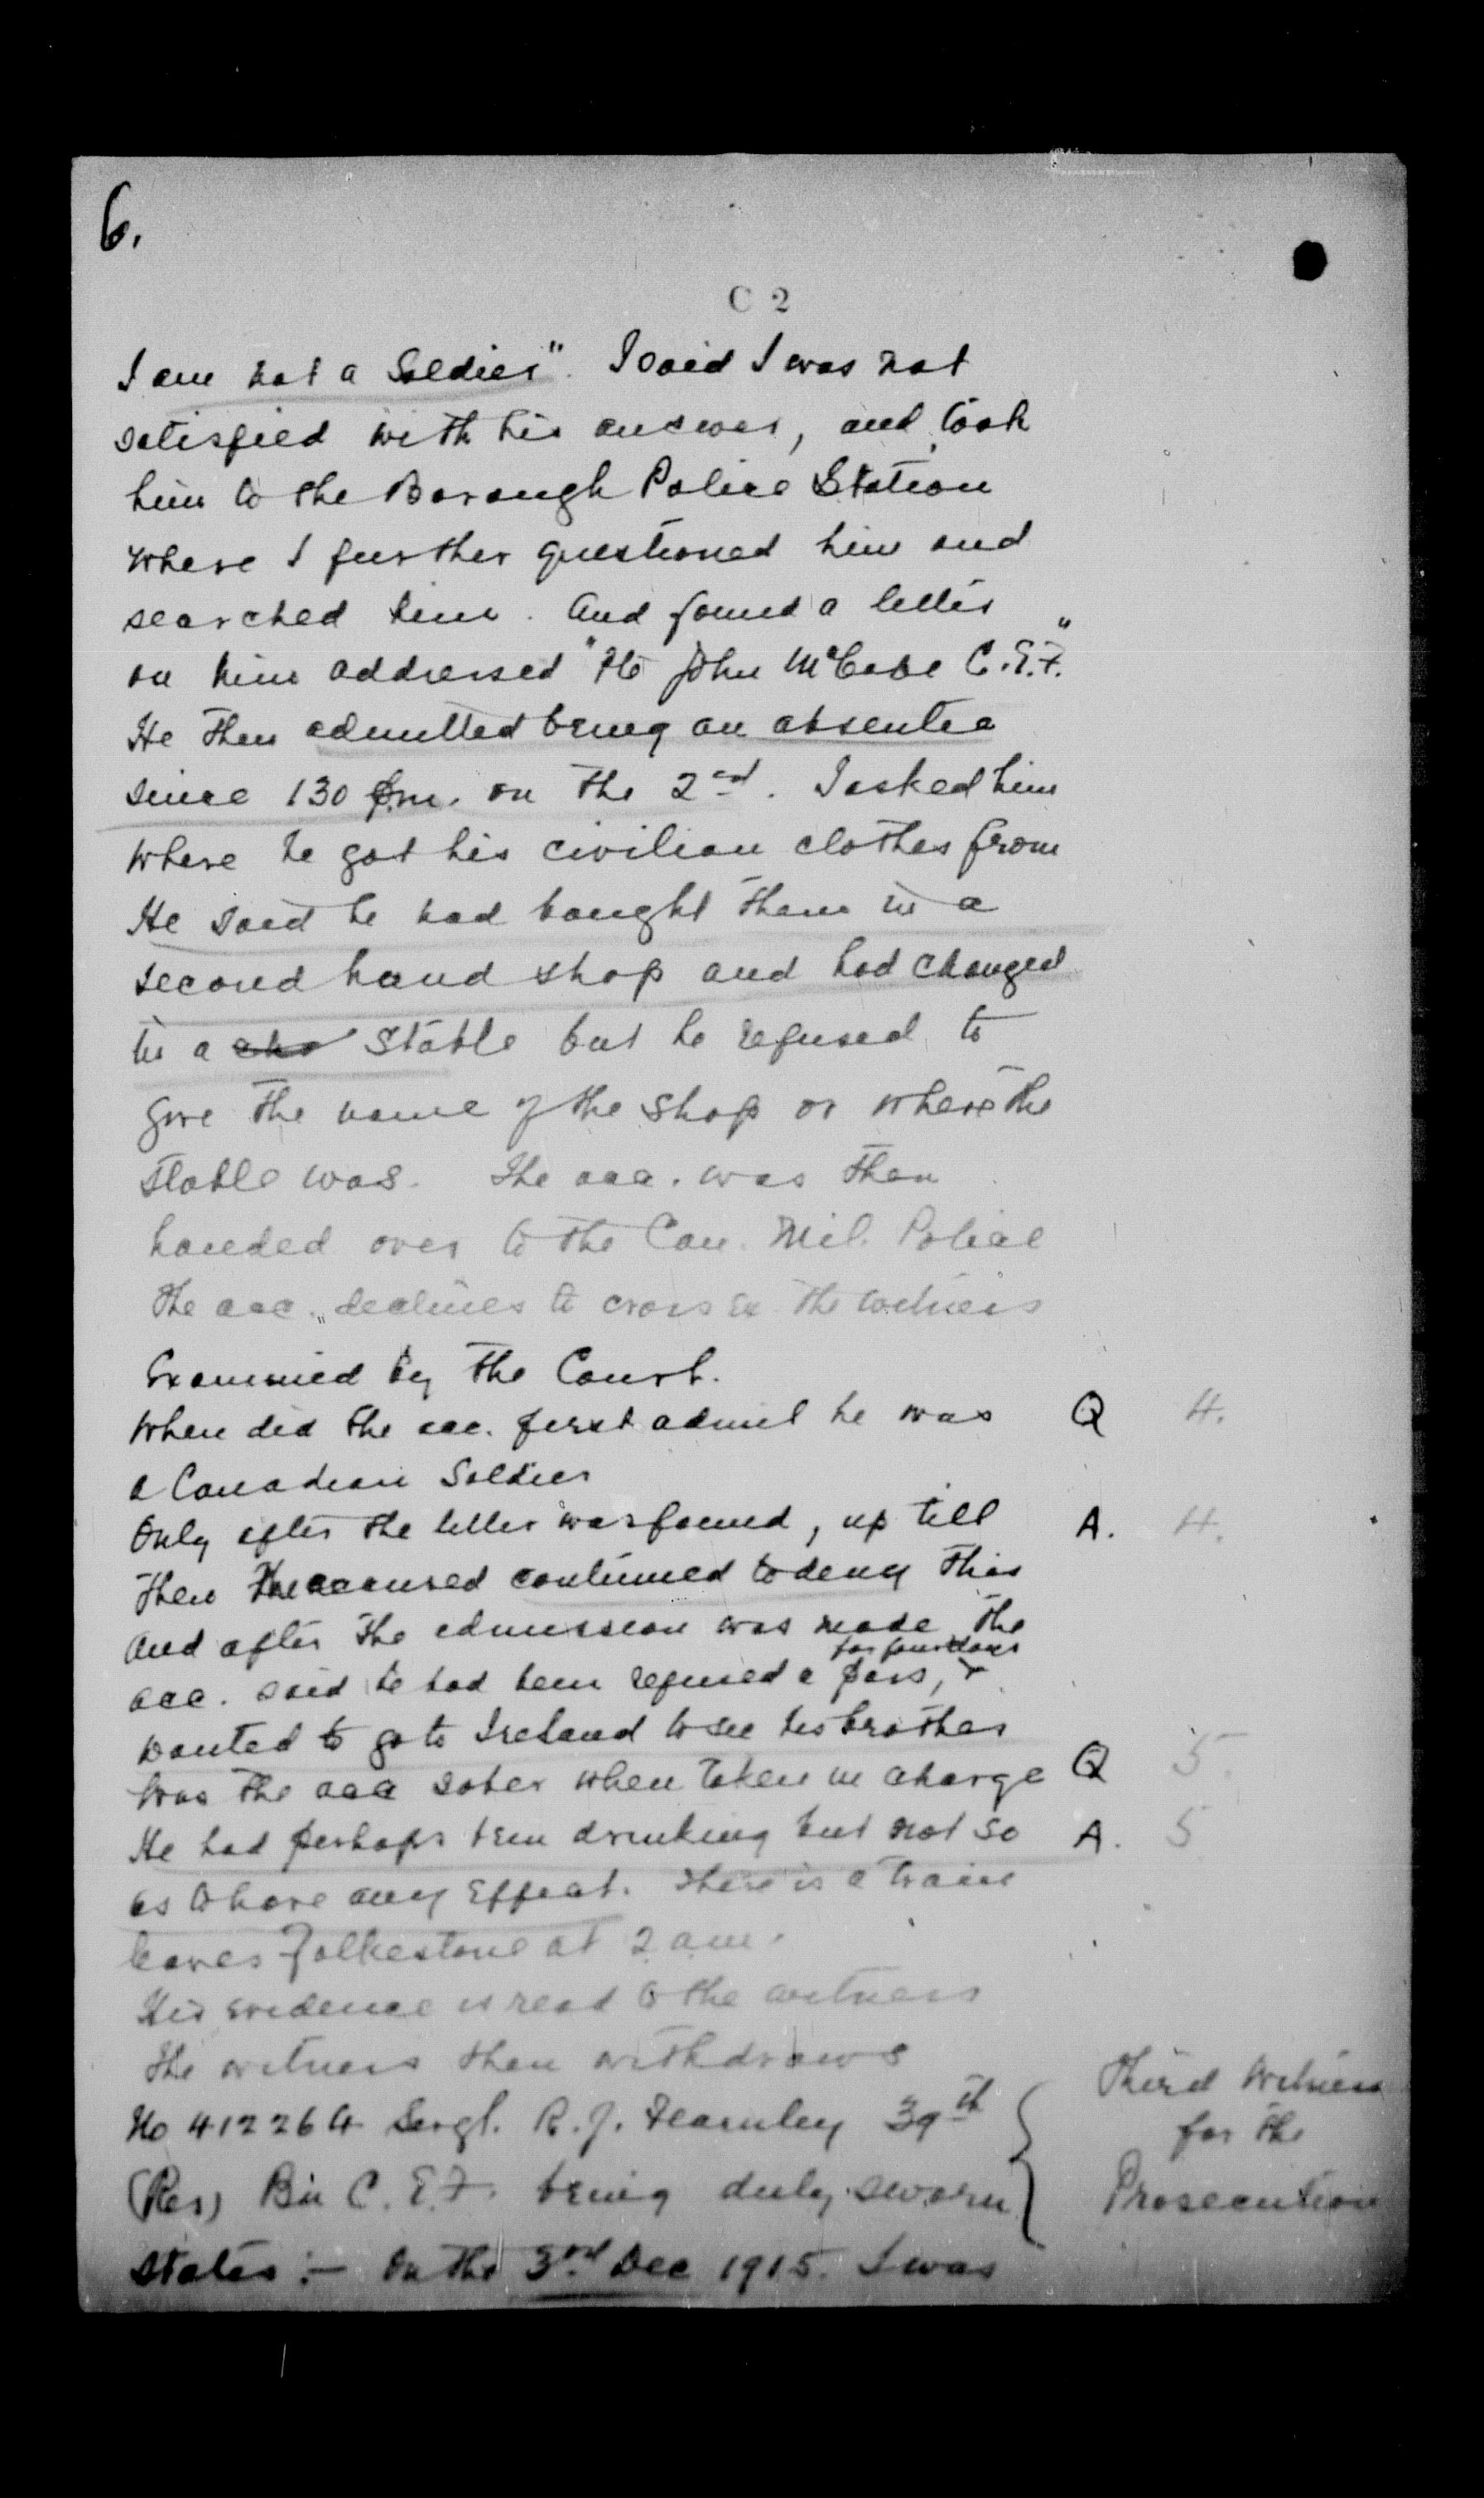 6.
C 2
I am not a Soldier". I said I was not
satisfied with his answer, and took
him to the Borough Police Station
Where I further questioned him and
searched him. And found a letter
on him addressed "Pte John McCabe C.E.F."
He then admitted being an absentee
since 130 pm. on the 2nd. I asked him
where he got his civilian clothes from
He said he had bought them in a
second hand shop and had changed
in a stable but he refused to
give the name of the shop or where the
stable was. The acc. was then
handed over to the Can. Mil. Police
The acc. declines to cross ex the witness
Examined by the Court.
When did the acc. first admit he was Q 4.
a Canadian Soldier
Only after the letter was found, up till A. 4.
then the accused continued to deny this
and after the admission was made the
acc. said he had been refused a pass, for four days &
wanted to go to Ireland to see his brother
Was the acc sober when taken in charge Q 5.
He had perhaps been drinking but not so A. 5
as to have any effect. There is a train
leaves Folkestone at 2 am.
His evidence is read to the witness
The witness then withdraws
No 412264 Sergt. R. J. Fearnley 39th Third Witness
for the
(Res) Bn C.E.F. being duly sworn Prosecution
states:- On the 3rd Dec 1915. I was